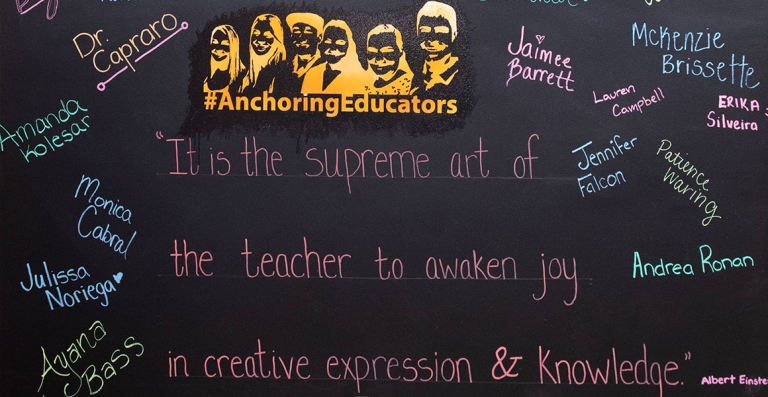 Dr.
Capraro
#AnchoringEducators
Jaimee
Barrett
McKenzie
Brissette
Lauren
Campbell
ERIKA
Silveira
Amanda
Kolesar
"It is the supreme art of
Jennifer
Falcon
Patience
Waring
Monica
Cabral
the teacher to awaken joy
Andrea Ronan
Julissa
Noriega
Ayana
Bass
in creative expression & Knowledge."
Albert Einste